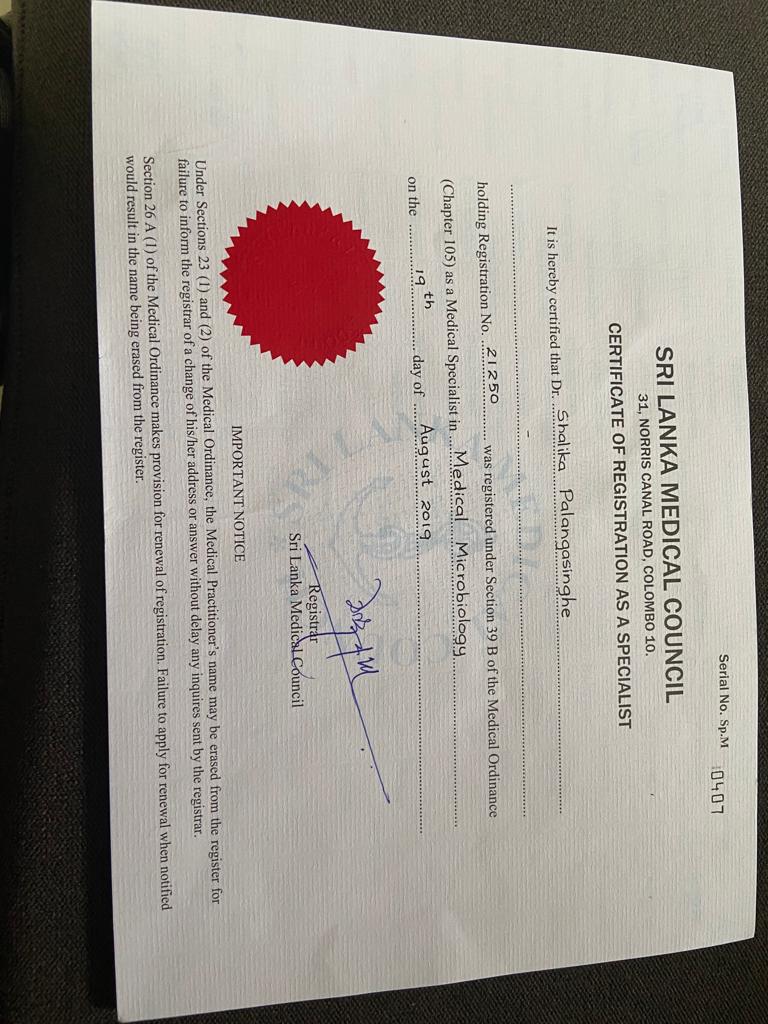 Serial No. Sp.M 0407
SRI LANKA MEDICAL COUNCIL
31, NORRIS CANAL ROAD, COLOMBO 10.
CERTIFICATE OF REGISTRATION AS A SPECIALIST
It is hereby certified that Dr. Shalika Palangasinghe
-
holding Registration No. 21250 was registered under Section 39 B of the Medical Ordinance
(Chapter 105) as a Medical Specialist in Medical Microbiology
on the 19th day of August 2019
Registrar
Sri Lanka Medical Council
IMPORTANT NOTICE
Under Sections 23 (1) and (2) of the Medical Ordinance, the Medical Practitioner's name may be erased from the register for
failure to inform the registrar of a change of his/her address or answer without delay any inquires sent by the registrar.
Section 26 A (1) of the Medical Ordinance makes provision for renewal of registration. Failure to apply for renewal when notified
would result in the name being erased from the register.